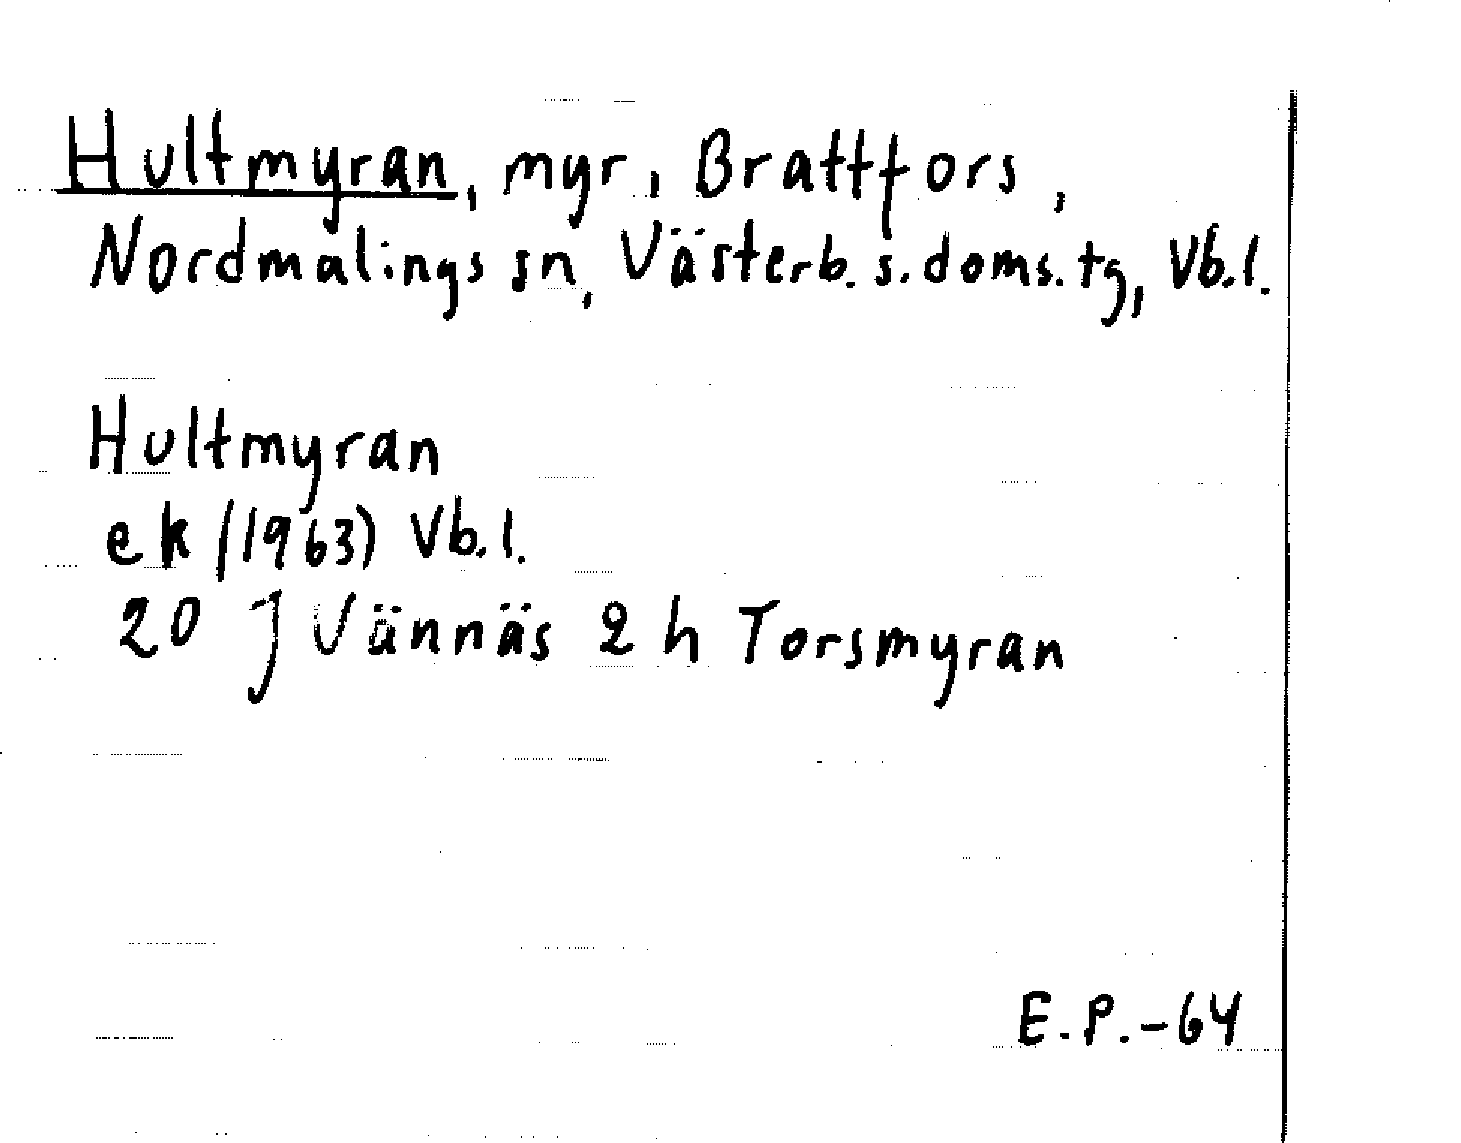 Hultmyran, myr, Brattfors,
Nordmalings sn, Västerb. s. doms. tg, Vb.l.
Hultmyran
ek (1963) Vb.l.
20 J Vännäs 2 h Torsmyran
E.P.-64